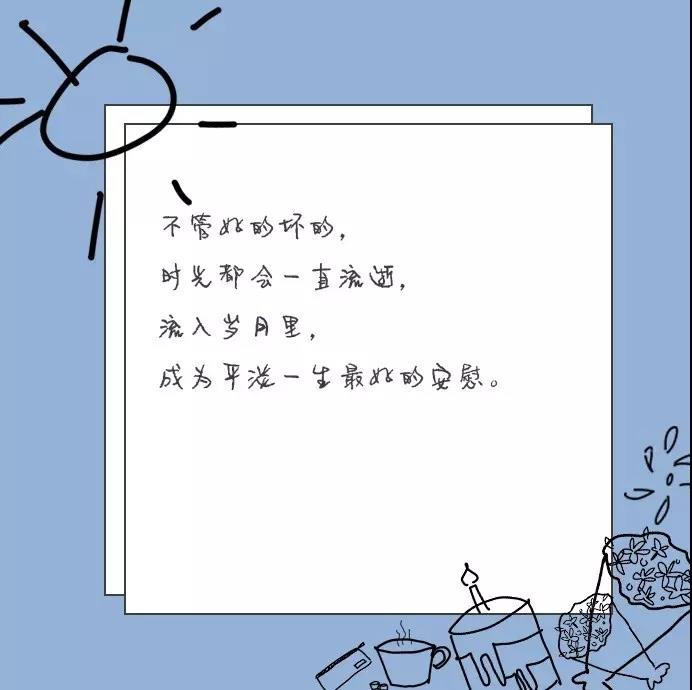 不管好的坏的，
时光都会一直流逝，
流入岁月里，
成为平淡一生最好的安慰。